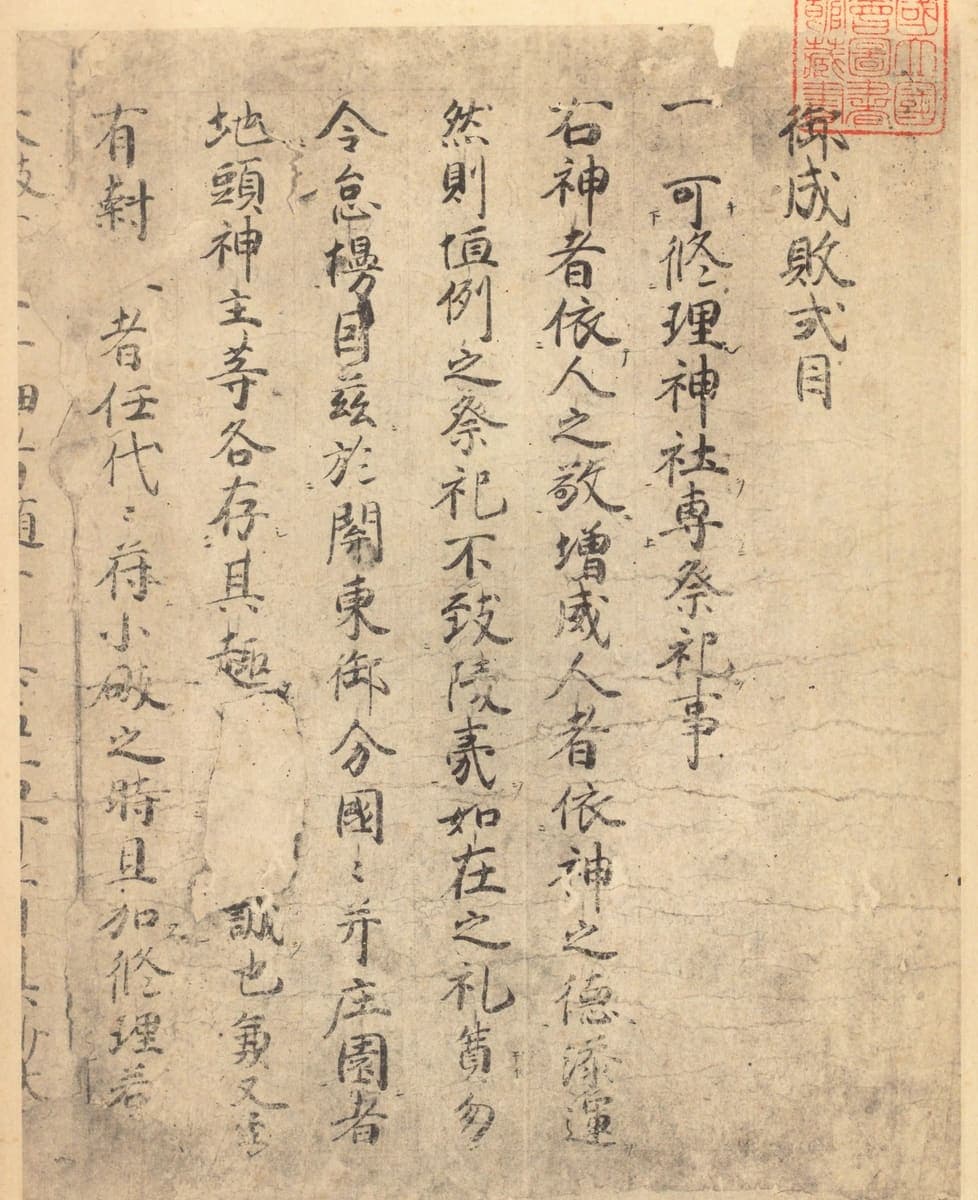 國立國會圖書館藏書
御成敗式目
一 可修理神社専祭祀事
右神者依人之敬増威人者依神之徳添運
然則恒例之祭祀不致陵夷如在之礼奠勿
令怠慢因茲於関東御分國々并庄園者
地頭神主等各存其趣 誠也兼又至
有封 者任代々符小破之時且加修理若